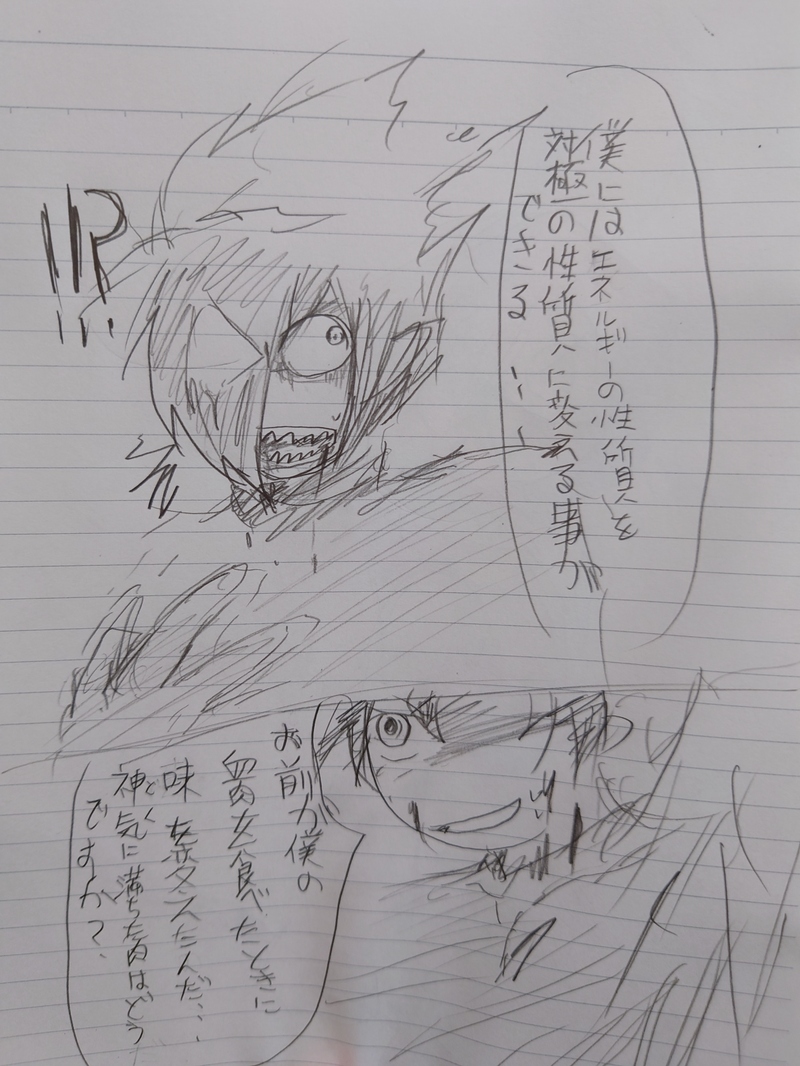 !!?
僕にはエネルギーの性質を
対極の性質に変える事が
できる…
お前が僕の
肉を食べたときに
味を変えたんだ…
神気に満ちた肉はどう
ですか?